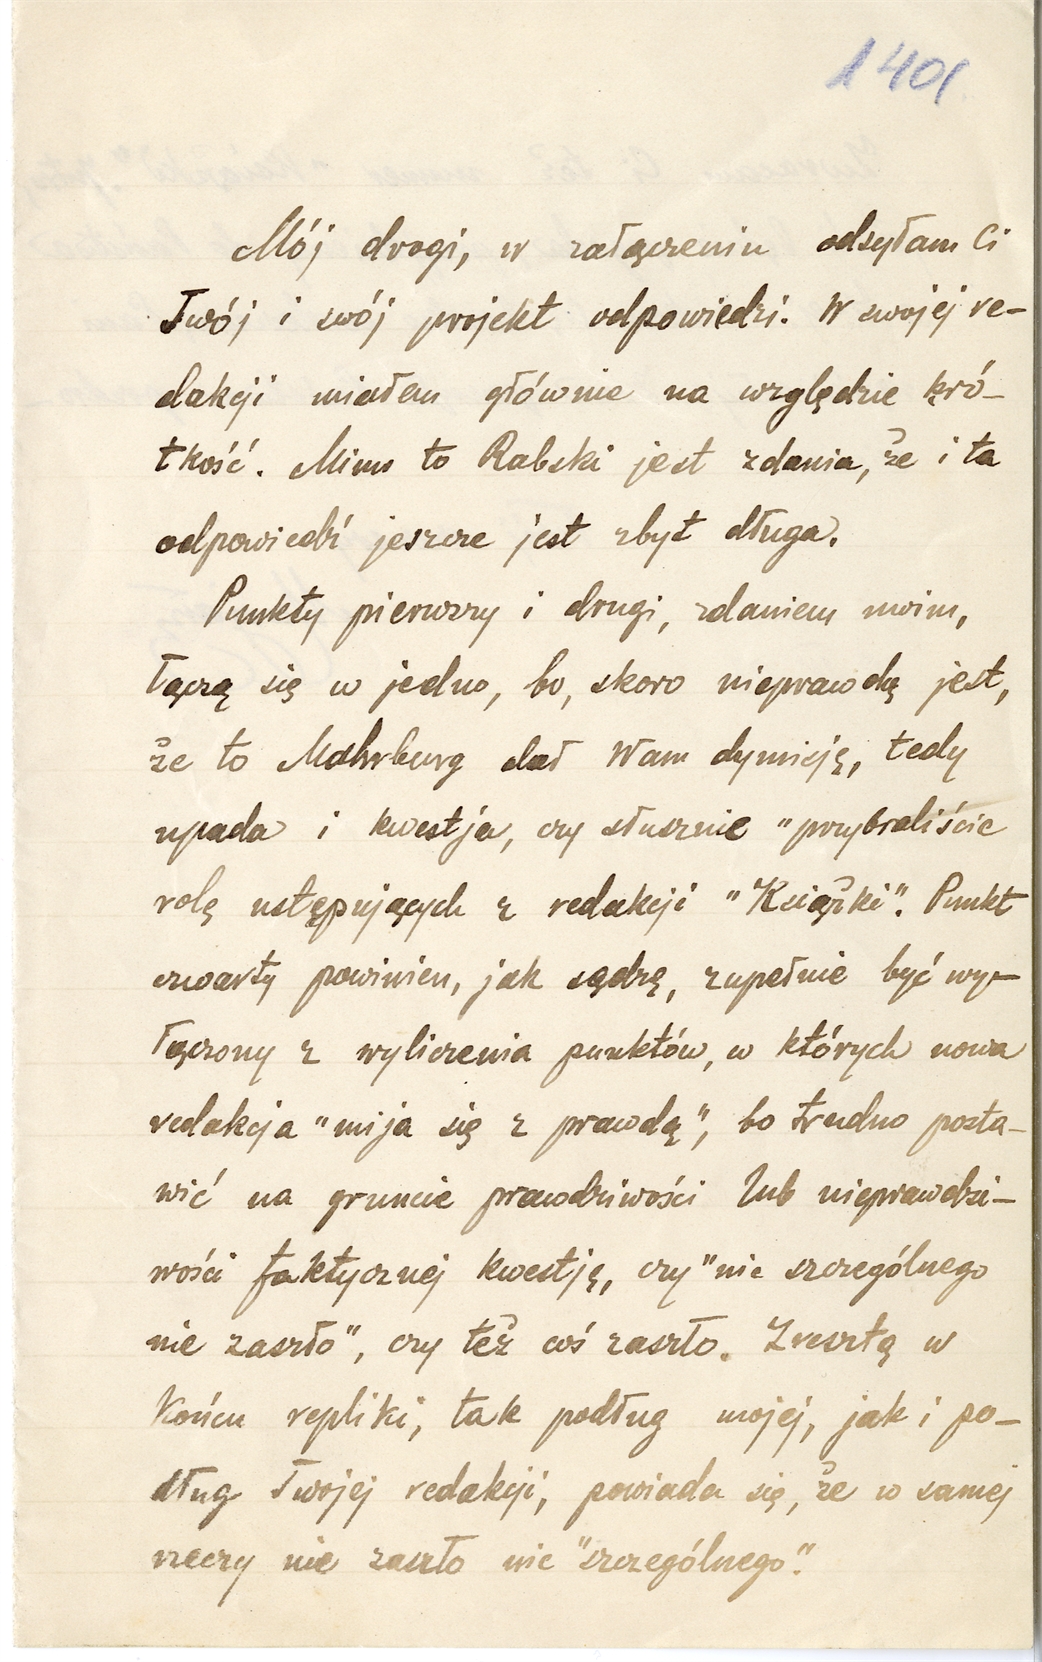 1401
Mój drogi, w załączeniu odsyłam Ci
Twój i swój projekt odpowiedzi. W swojej re-
dakcji miałem głównie na względzie kró-
tkość. Mimo to Rabski jest zdania, że i ta
odpowiedź jeszcze jest zbyt długa.
Punkty pierwszy i drugi, zdaniem moim,
łączą się w jedno, bo, skoro nieprawdą jest,
że to Mahrburg dał Wam dymisję, tedy
upada i kwestja, czy słusznie "przybraliście
rolę ustępujących z redakcji "Książki". Punkt
czwarty powinien, jak sądzę, zupełnie być wy-
łączony z wyliczenia punktów, w których nowa
redakcja "mija się z prawdą", bo trudno posta-
wić na gruncie prawdziwości lub nieprawdzi-
wości faktycznej kwestję, czy "nic szczególnego
nie zaszło", czy też coś zaszło. Zresztą w
końcu repliki, tak podług mojej, jak i po-
dług Twojej redakcji, powiada się, że w samej
rzeczy nie zaszło nic "szczególnego".